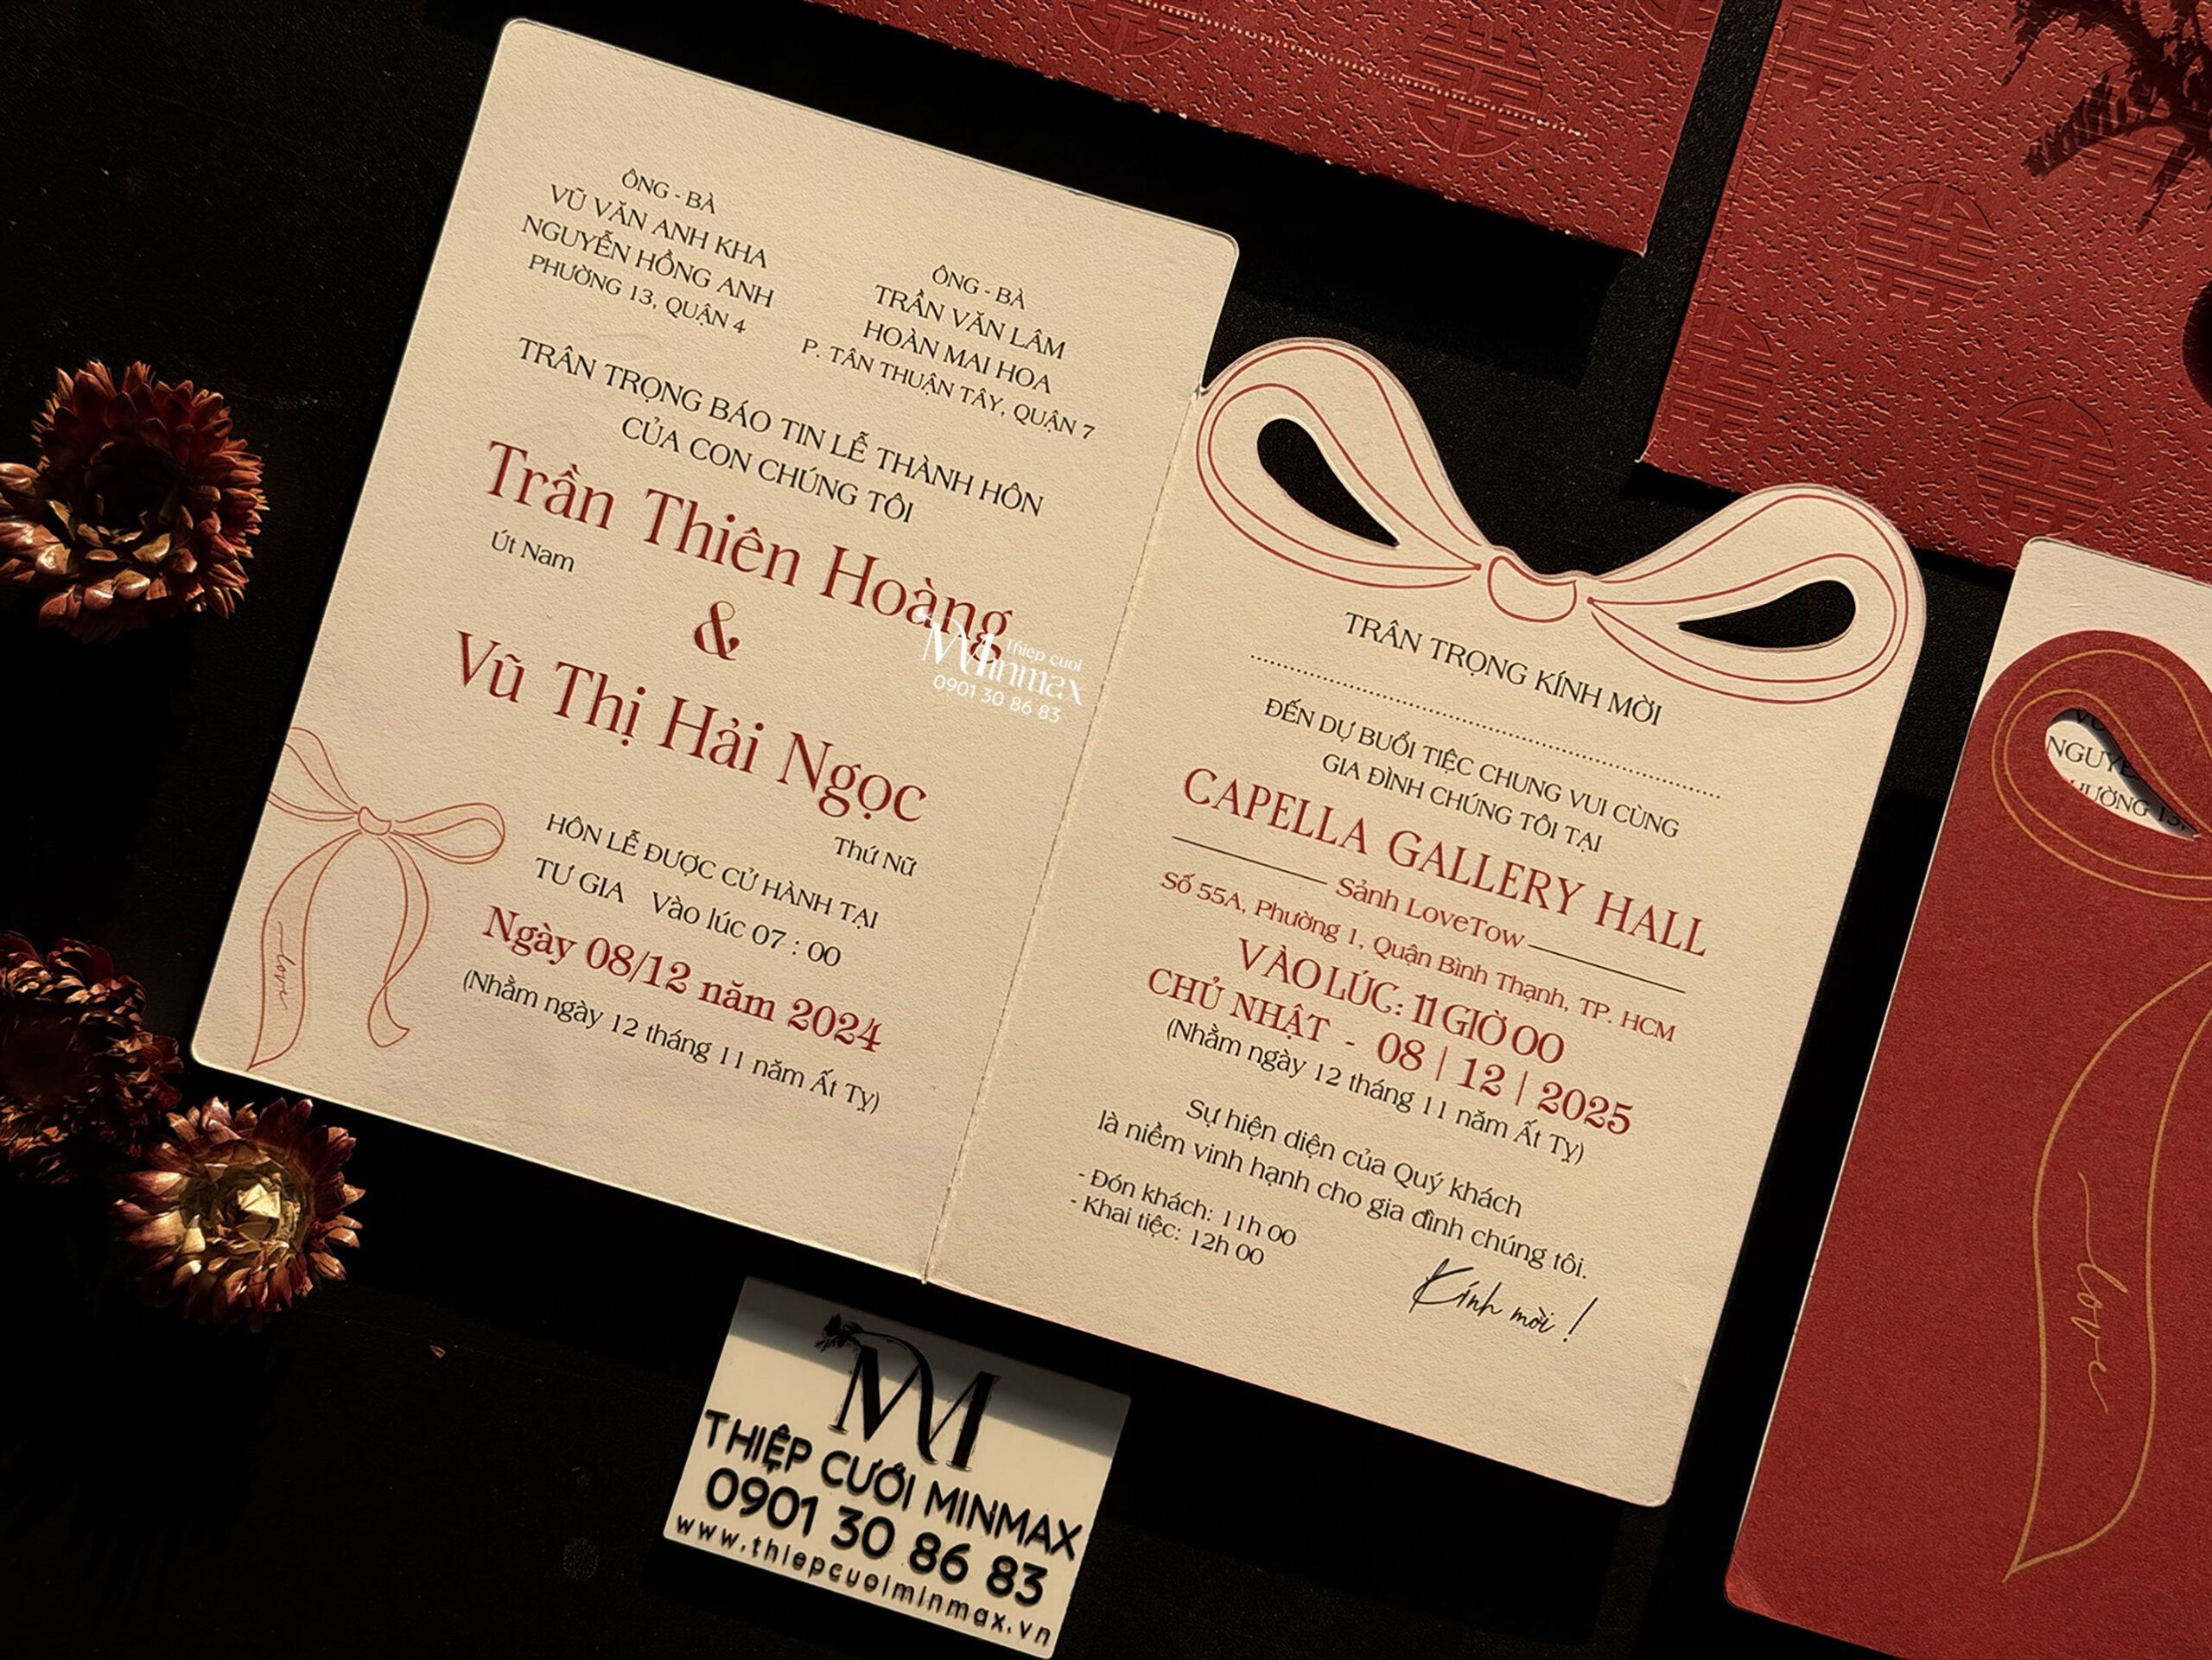 ÔNG - BÀ
VŨ VĂN ANH KHA
NGUYỄN HỒNG ANH
PHƯỜNG 13, QUẬN 4
ÔNG - BÀ
TRẦN VĂN LÂM
HOÀN MAI HOA
P. TÂN THUẬN TÂY, QUẬN 7
TRÂN TRỌNG BÁO TIN LỄ THÀNH HÔN
CỦA CON CHÚNG TÔI
Trần Thiên Hoàng
Út Nam
&
Vũ Thị Hải Ngọc
Thứ Nữ
HÔN LỄ ĐƯỢC CỬ HÀNH TẠI
TƯ GIA Vào lúc 07 : 00
Ngày 08/12 năm 2024
(Nhằm ngày 12 tháng 11 năm Ất Tỵ)
love
Thiep cuoi
Minmax
0901 30 86 83
TRÂN TRỌNG KÍNH MỜI
ĐẾN DỰ BUỔI TIỆC CHUNG VUI CÙNG
GIA ĐÌNH CHÚNG TÔI TẠI
CAPELLA GALLERY HALL
Sảnh LoveTow
Số 55A, Phường 1, Quận Bình Thạnh, TP. HCM
VÀO LÚC: 11 GIỜ 00
CHỦ NHẬT - 08 | 12 | 2025
(Nhằm ngày 12 tháng 11 năm Ất Tỵ)
Sự hiện diện của Quý khách
là niềm vinh hạnh cho gia đình chúng tôi.
- Đón khách: 11h 00
- Khai tiệc: 12h 00
Kính mời !
NGUYỄ
ƯỜNG 13,
love
M
THIỆP CƯỚI MINMAX
0901 30 86 83
www.thiepcuoiminmax.vn